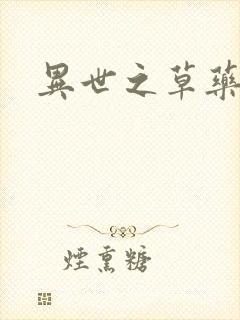 異世之草藥
煙熏糖